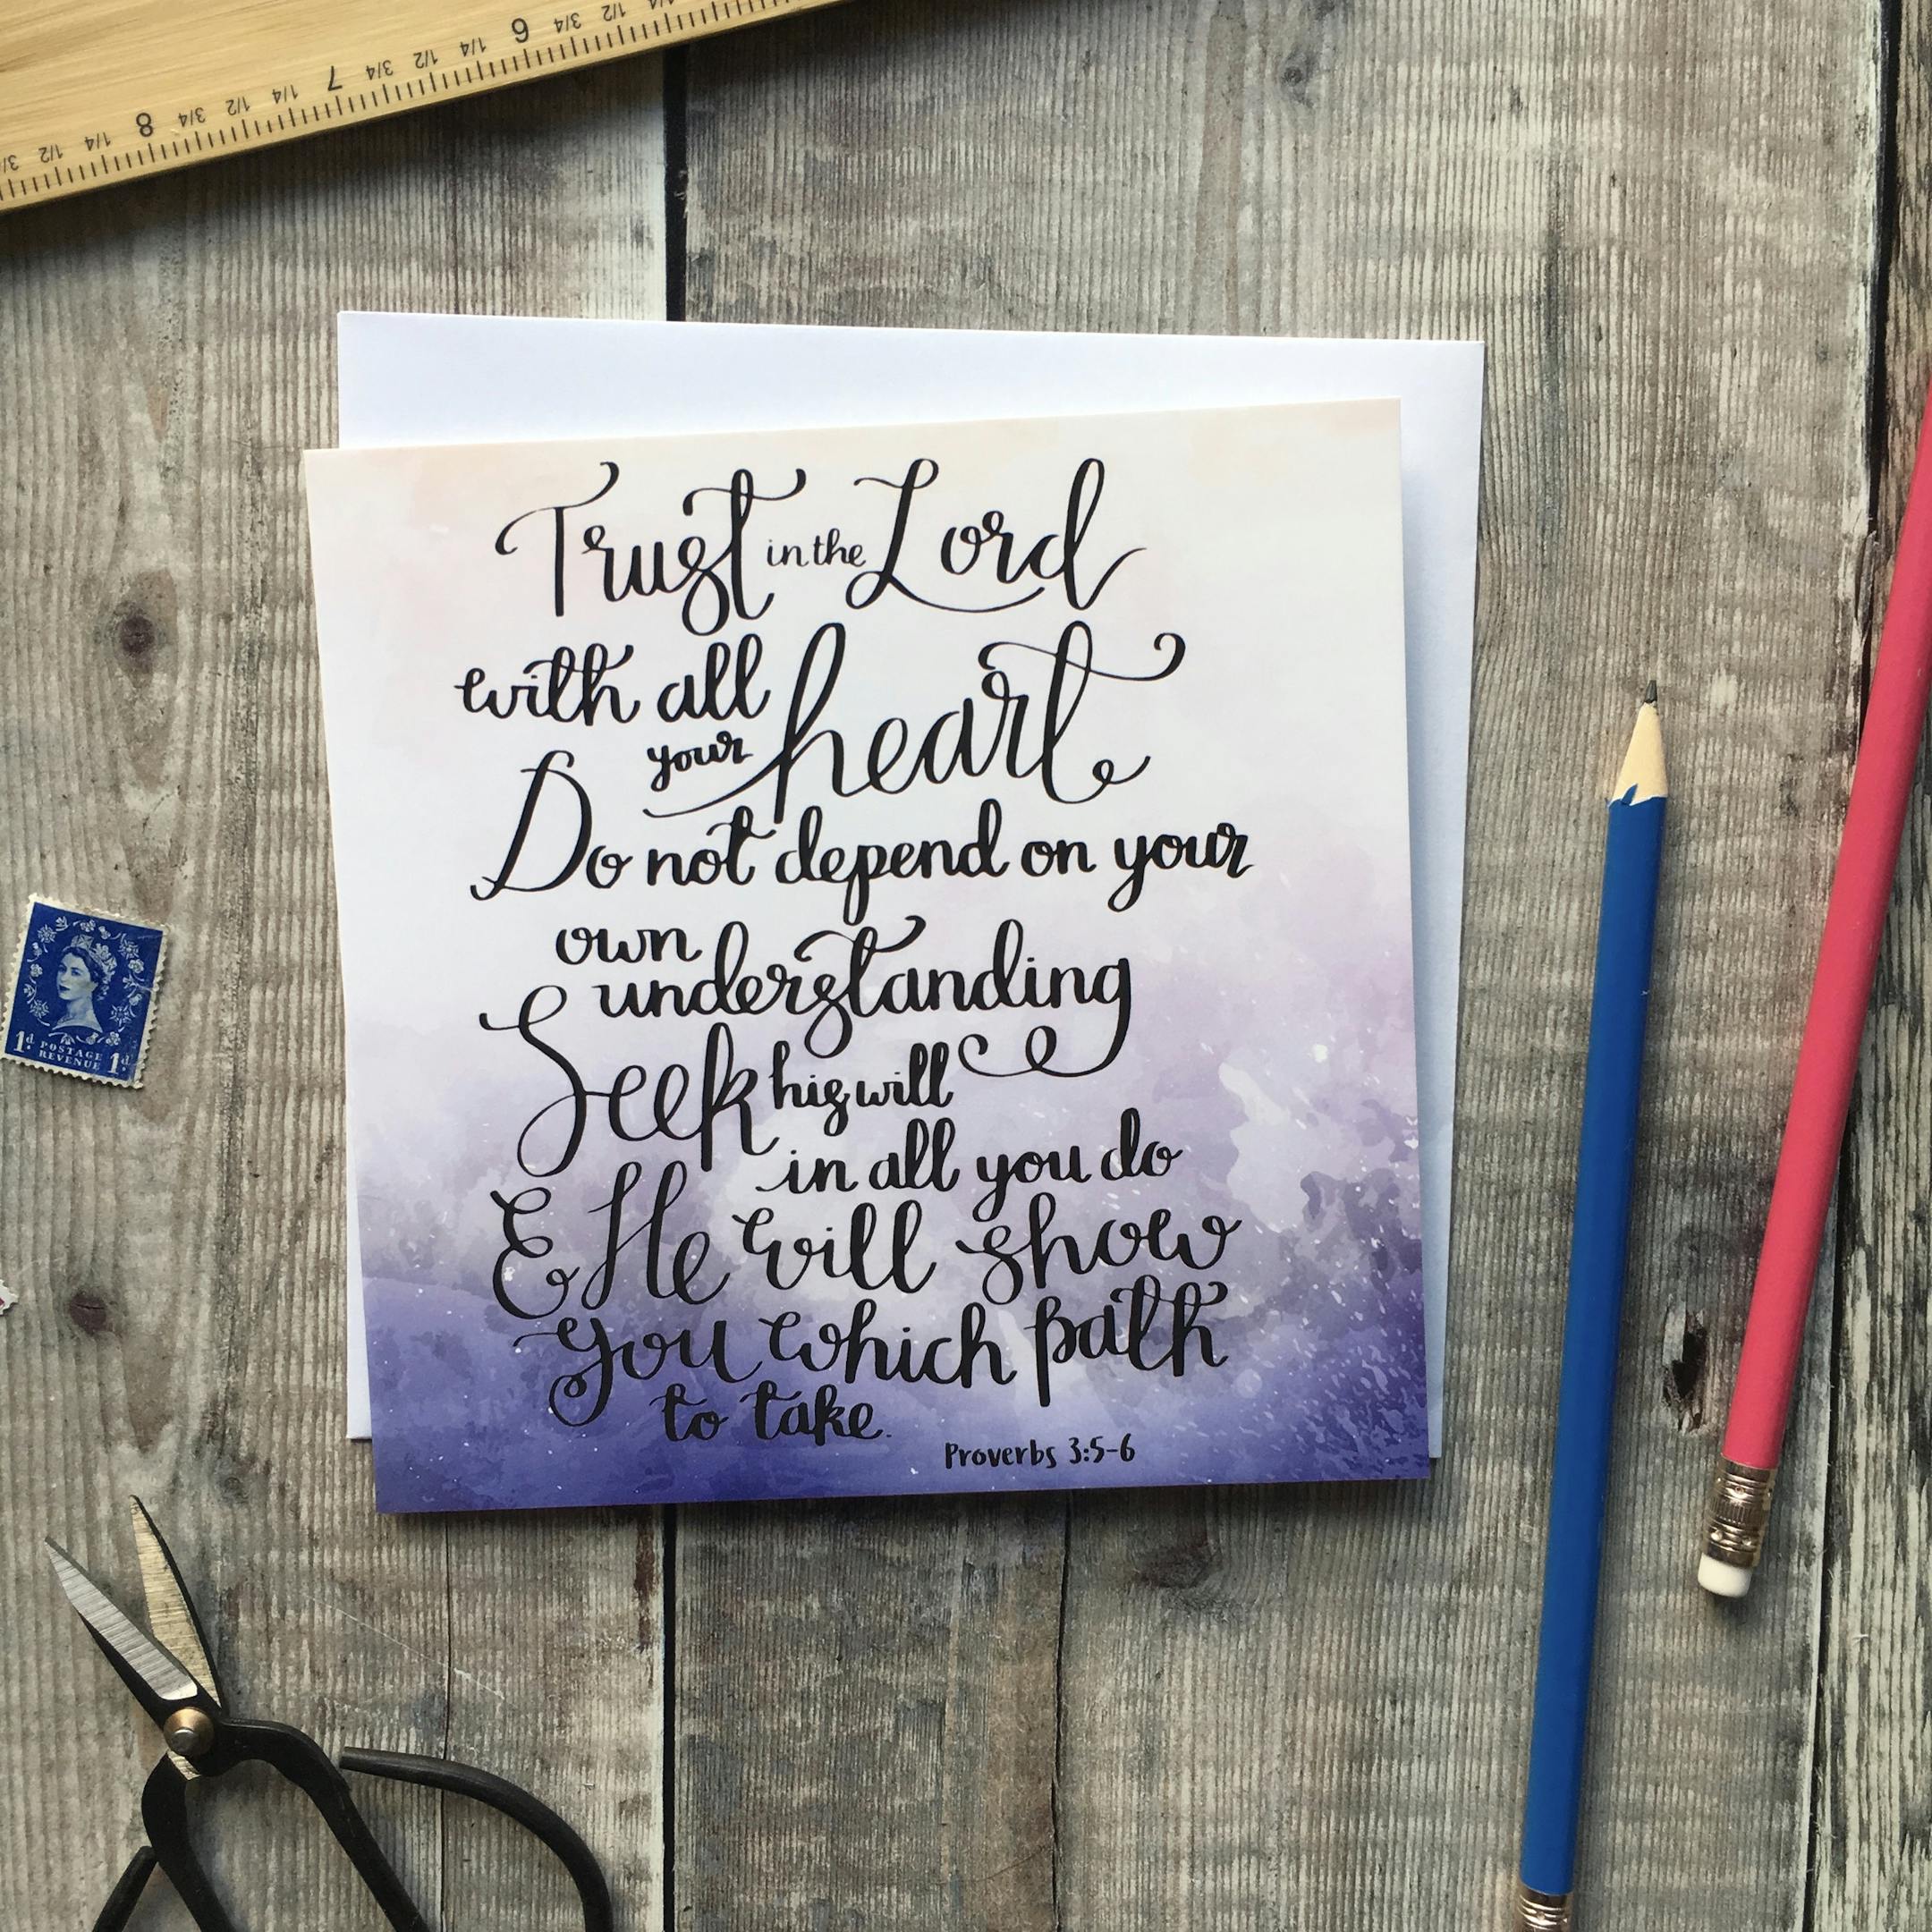 3/ 1/2 1/4 8 3/4 1/2 1/4 7 3/4 1/2 1/4 6 3/4 1/2 1/4
Trust in the Lord
with all
your heart
Do not depend on your
own
understanding
Seek his will
in all you do
& He will show
you which path
to take.
Proverbs 3:5-6
1d POSTAGE 1d
REVENUE